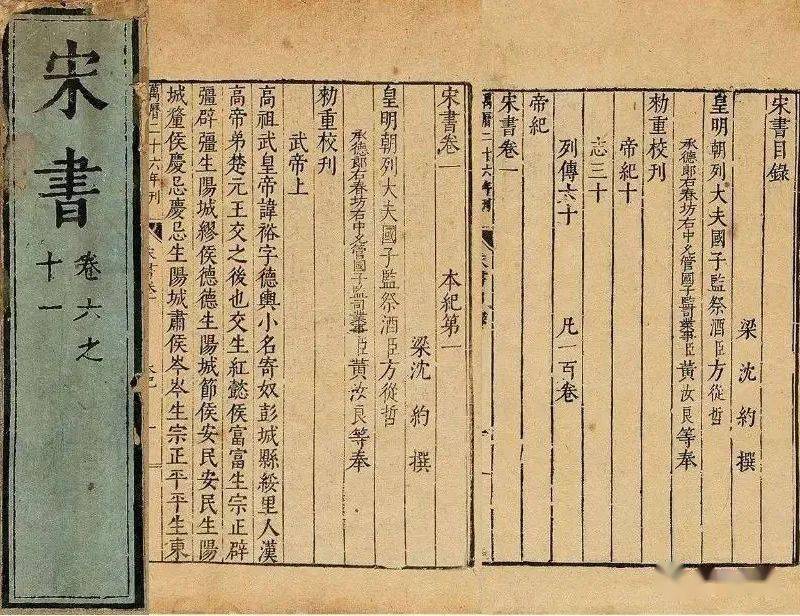 宋書
卷六之
十一
宋書目錄
梁沈約撰
皇明朝列大夫國子監祭酒臣方從哲
承德郎右春坊右中允管國子監司業事臣黃汝良等奉
勑重校刊
帝紀十
志三十
列傳六十 凡一百卷
帝紀
宋書卷一
萬曆二十六年刊
宋書卷一 本紀第一
梁沈約撰
皇明朝列大夫國子監祭酒臣方從哲
承德郎右春坊右中允管國子監司業事臣黃汝良等奉
勑重校刊
武帝上
高祖武皇帝諱裕字德輿小名寄奴彭城縣綏里人漢
高帝弟楚元王交之後也交生紅懿侯富富生宗正辟
彊辟彊生陽城繆侯德德生陽城節侯安民安民生陽
城釐侯慶忌慶忌生陽城肅侯岑岑生宗正平平生東
萬曆二十六年刊 宋書卷一